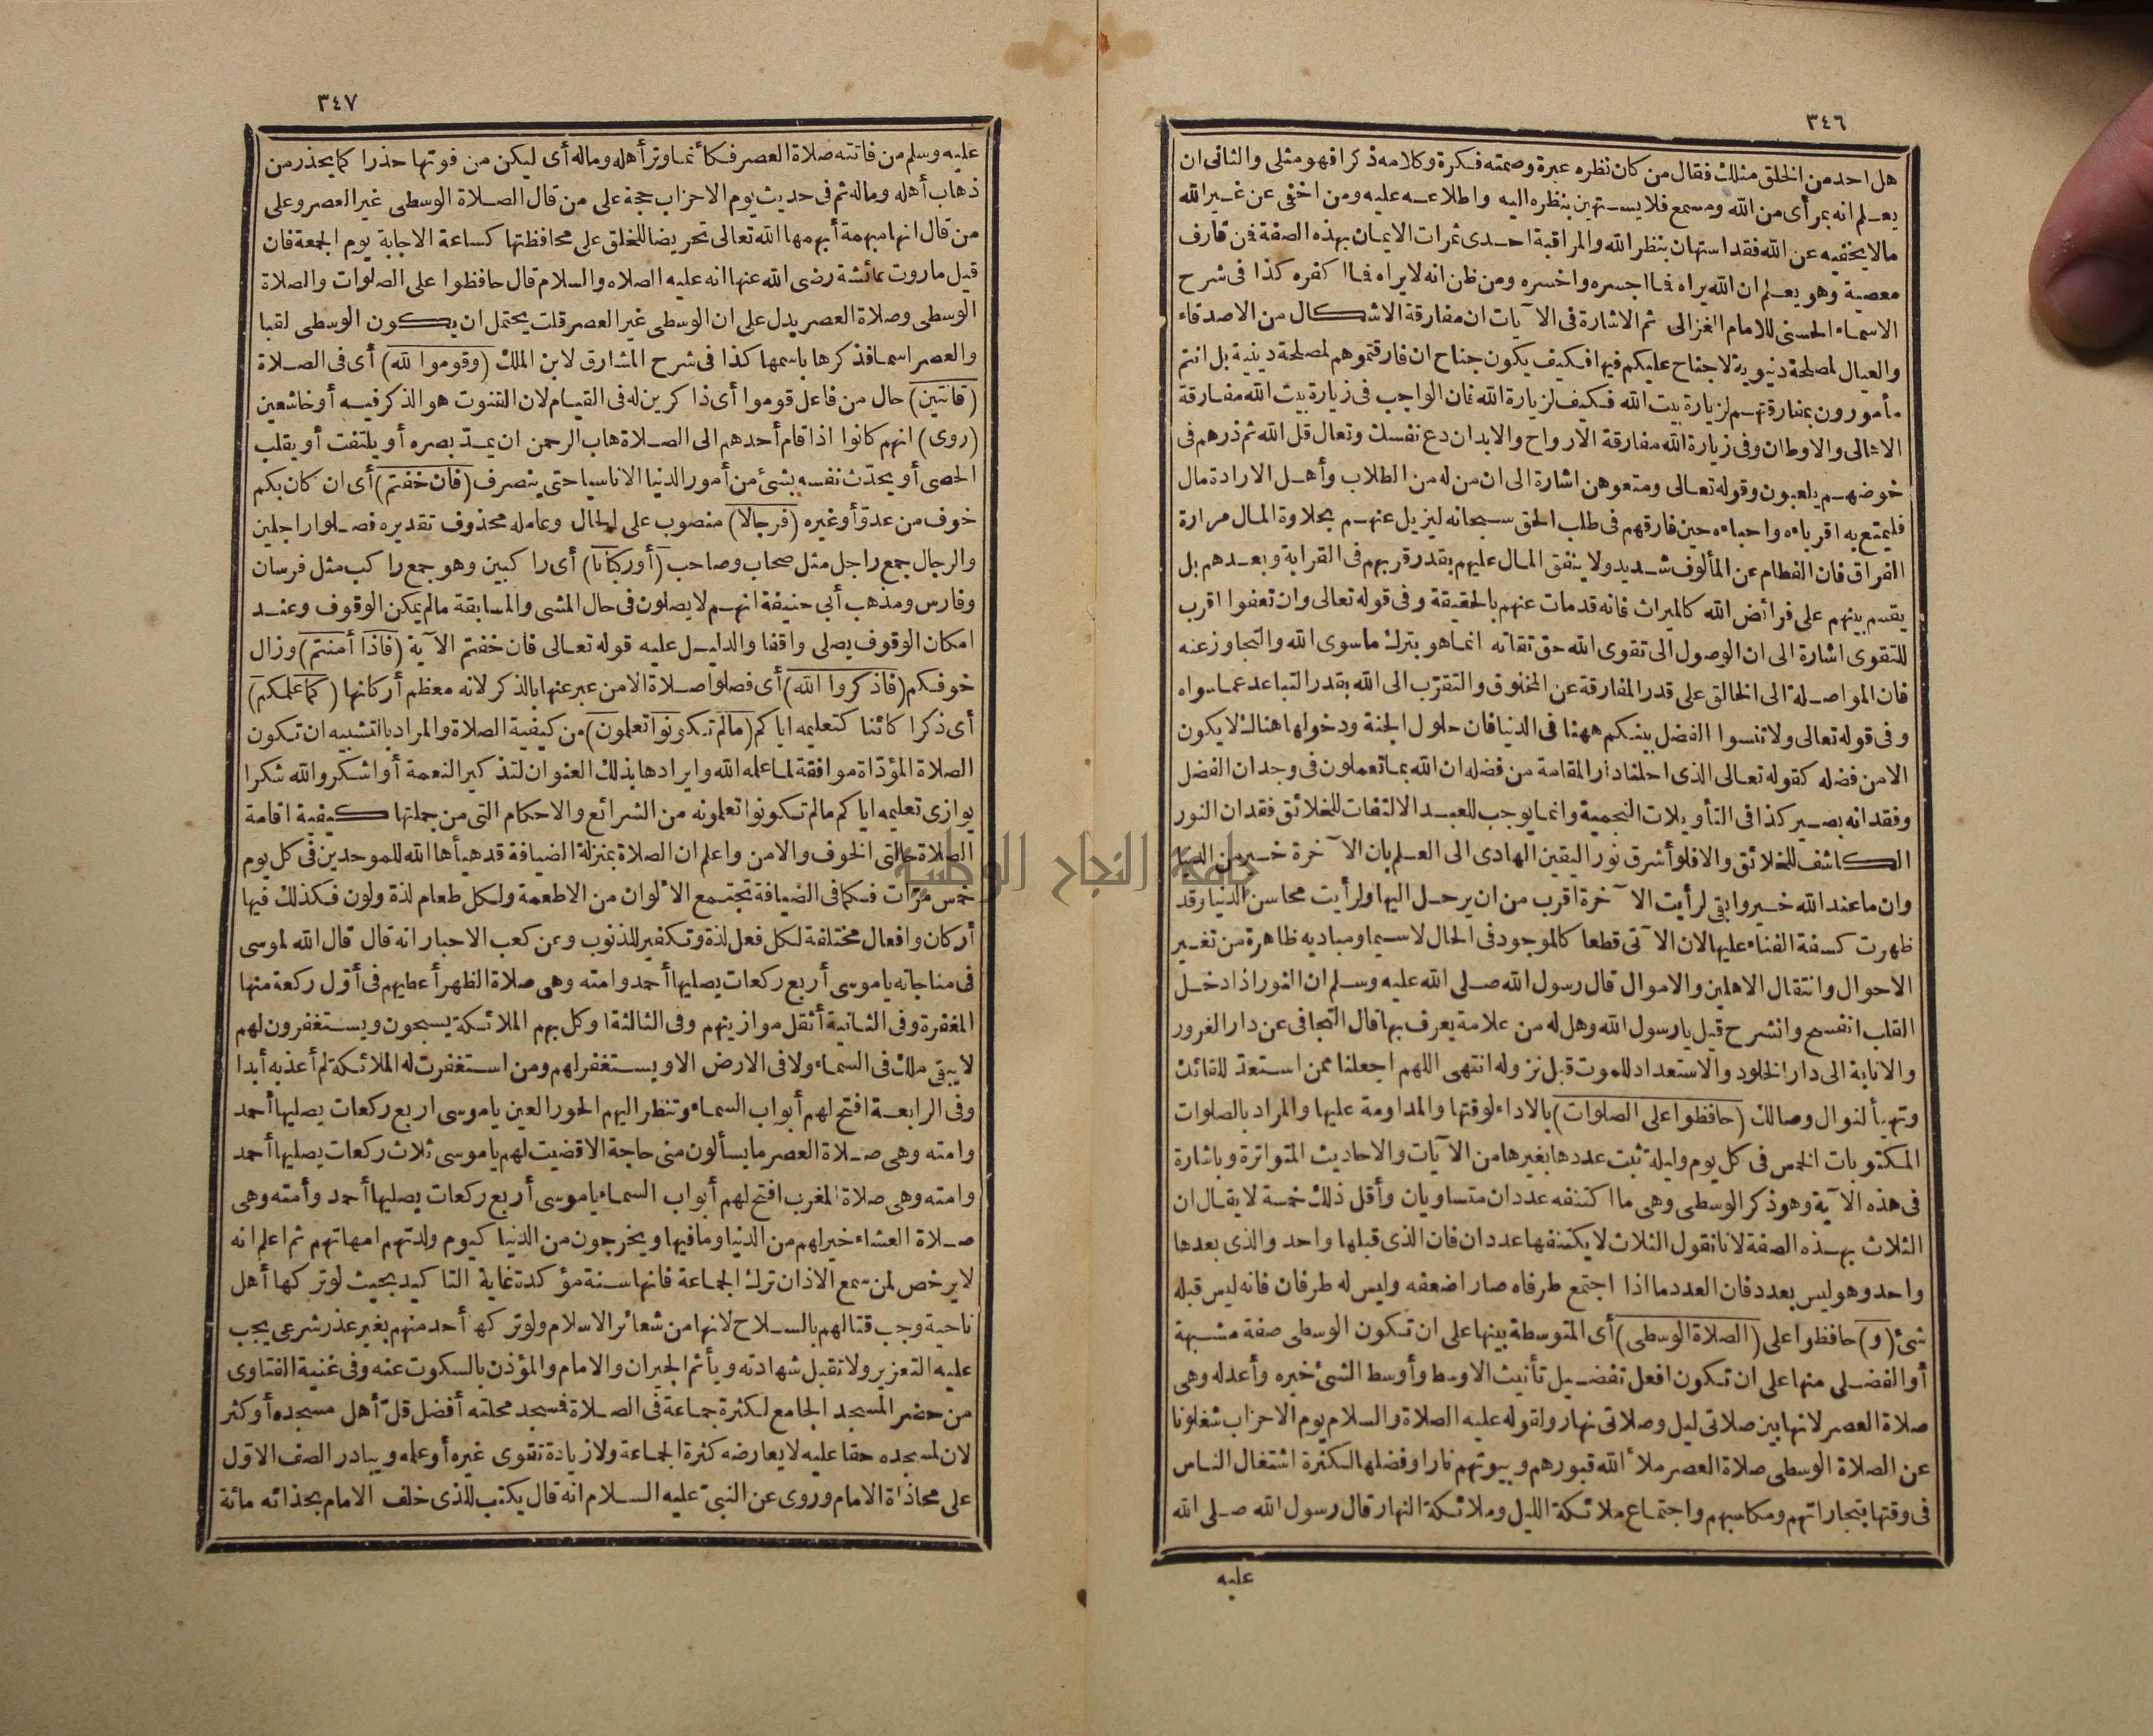 ٣٤٦
هل احد من الخلق مثلك فقال من كان نظره عبرة وصمته فكرة وكلامه ذكرا فهو مثلى والثانى ان
يعلم انه بمرأى من الله ومسمع فلا يستهين بنظره اليه واطلاعه عليه ومن اخفى عن غير الله
مالا يخفيه عن الله فقد استهان بنظر الله والمراقبة احدى ثمرات الايمان بهذه الصفة فمن قارف
معصية وهو يعلم ان الله يراه فما اجسره واخسره ومن ظن انه لا يراه فما اكفره كذا فى شرح
الاسماء الحسنى للامام الغزالى ثم الاشارة فى الآيات ان مفارقة الاشكال من الاصدقاء
والعيال لمصلحة دنيوية لا جناح عليكم فيها فكيف يكون جناح ان فارقتموهم لمصلحة دينية بل انتم
مأمورون بمفارقتهم لزيارة بيت الله فكيف لزيارة الله فان الواجب فى زيارة بيت الله مفارقة
الاهالى والاوطان وفى زيارة الله مفارقة الارواح والابدان دع نفسك وتعال قل الله ثم ذرهم فى
خوضهم يلعبون وقوله تعالى ومتعوهن اشارة الى ان من له من الطلاب وأهل الارادة مال
فليمتع به اقرباءه واحباءه حين فارقهم فى طلب الحق سبحانه ليزيل عنهم بحلاوة المال مرارة
الفراق فان الفطام عن المألوف شديد ولا ينفق المال عليهم بقدر قربهم فى القرابة وبعدهم بل
يقسم بينهم على فرائض الله كالميراث فانه قدمات عنهم بالحقيقة وفى قوله تعالى وان تعفوا اقرب
للتقوى اشارة الى ان الوصول الى تقوى الله حق تقاته انما هو بترك ما سوى الله والتجاوز عنه
فان المواصلة الى الخالق على قدر المفارقة عن المخلوق والتقرّب الى الله بقدر التباعد عما سواه
وفى قوله تعالى ولا تنسوا الفضل بينكم ههنا فى الدنيا فان حلول الجنة ودخولها هنالك لا يكون
الا من فضله كقوله تعالى الذى احلنا دار المقامة من فضله ان الله بما تعملون فى وجدان الفضل
وفقدانه بصير كذا فى التأويلات النجمية وانما يوجب للعبد الالتفات للخلائق فقدان النور
الكاشف للخلائق والا فلو أشرق نور اليقين الهادى الى العلم بان الآخرة خير من الدنيا
وان ما عند الله خير وابقى لرأيت الآخرة اقرب من ان يرحل اليها ولرأيت محاسن الدنيا وقد
ظهرت كسفة الفناء عليها لان الآتى قطعا كالموجود فى الحال لا سيما ومباديه ظاهرة من تغير
الاحوال وانتقال الاهلين والاموال قال رسول الله صلى الله عليه وسلم ان النور اذا دخل
القلب انفسح وانشرح قيل يا رسول الله وهل له من علامة يعرف بها قال التجافى عن دار الغرور
والانابة الى دار الخلود والاستعداد للموت قبل نزوله انتهى اللهم اجعلنا ممن استعد للقائك
وتهيأ لنوال وصالك (حافظوا على الصلوات) بالاداء لوقتها والمداومة عليها والمراد بالصلوات
المكتوبات الخمس فى كل يوم وليلة ثبت عددها بغيرها من الآيات والاحاديث المتواترة وباشارة
فى هذه الآية وهو ذكر الوسطى وهى ما اكتنفه عددان متساويان وأقل ذلك خمسة لا يقال ان
الثلاث بهذه الصفة لانا نقول الثلاث لا يكتنفها عددان فان الذى قبلها واحد والذى بعدها
واحد وهو ليس بعدد فان العدد ما اذا اجتمع طرفاه صارا ضعفه وليس له طرفان فانه ليس قبله
شئ (و) حافظوا على (الصلاة الوسطى) أى المتوسطة بينها على ان تكون الوسطى صفة مشبهة
أو الفضلى منها على ان تكون افعل تفضيل تأنيث الاوسط وأوسط الشئ خيره وأعدله وهى
صلاة العصر لانها بين صلاتى ليل وصلاتى نهار ولقوله عليه الصلاة والسلام يوم الاحزاب شغلونا
عن الصلاة الوسطى صلاة العصر ملأ الله قبورهم وبيوتهم نارا وفضلها لكثرة اشتغال الناس
فى وقتها بتجاراتهم ومكاسبهم واجتماع ملائكة الليل وملائكة النهار قال رسول الله صلى الله
عليه
٣٤٧
عليه وسلم من فاتته صلاة العصر فكأنما وتر أهله وماله أى ليكن من فوتها حذرا كما يحذر من
ذهاب أهله وماله ثم فى حديث يوم الاحزاب حجة على من قال الصلاة الوسطى غير العصر وعلى
من قال انها مبهمة أبهمها الله تعالى تحريضا للخلق على محافظتها كساعة الاجابة يوم الجمعة فان
قيل ما روت عائشة رضى الله عنها انه عليه الصلاه والسلام قال حافظوا على الصلوات والصلاة
الوسطى وصلاة العصر يدل على ان الوسطى غير العصر قلت يحتمل ان يكون الوسطى لقبا
والعصر اسما فذكرها باسمها كذا فى شرح المشارق لابن الملك (وقوموا لله) أى فى الصلاة
(قانتين) حال من فاعل قوموا أى ذاكرين له فى القيام لان القنوت هو الذكر فيه أو خاشعين
(روى) انهم كانوا اذا قام أحدهم الى الصلاة هاب الرحمن ان يمدّ بصره أو يلتفت أو يقلب
الحصى أو يحدّث نفسه بشئ من أمور الدنيا الا ناسيا حتى ينصرف (فان خفتم) أى ان كان بكم
خوف من عدوّ أو غيره (فرجالا) منصوب على الحال وعامله محذوف تقديره فصلوا راجلين
والرجال جمع راجل مثل صحاب وصاحب (أو ركبانا) أى راكبين وهو جمع راكب مثل فرسان
وفارس ومذهب أبى حنيفة انهم لا يصلون فى حال المشى والمسابقة مالم يمكن الوقوف وعند
امكان الوقوف يصلى واقفا والدليل عليه قوله تعالى فان خفتم الآية (فاذا أمنتم) وزال
خوفكم (فاذكروا الله) أى فصلوا صلاة الامن عبر عنها بالذكر لانه معظم أركانها (كما علمكم)
أى ذكرا كائنا كتعليمه اياكم (مالم تكونوا تعلمون) من كيفية الصلاة والمراد بالتشبيه ان تكون
الصلاة المؤدّاة موافقة لما علمه الله وايرادها بذلك العنوان لتذكير النعمة أو اشكروا الله شكرا
يوازى تعليمه اياكم مالم تكونوا تعلمونه من الشرائع والاحكام التى من جملتها كيفية اقامة
الصلاة حالتى الخوف والامن واعلم ان الصلاة بمنزلة الضيافة قد هيأها الله للموحدين فى كل يوم
خمس مرّات فكما فى الضيافة تجتمع الالوان من الاطعمة ولكل طعام لذة ولون فكذلك فيها
أركان وافعال مختلفة لكل فعل لذة وتكفير للذنوب وعن كعب الاحبار انه قال قال الله لموسى
فى مناجاته يا موسى أربع ركعات يصليها أحمد وامته وهى صلاة الظهر أعطيهم فى أوّل ركعة منها
المغفرة وفى الثانية أثقل موازينهم وفى الثالثة اوكل بهم الملائكة يسبحون ويستغفرون لهم
لا يبقى ملك فى السماء ولا فى الارض الا ويستغفر لهم ومن استغفرت له الملائكة لم أعذبه أبدا
وفى الرابعة افتح لهم أبواب السماء وتنظر اليهم الحور العين يا موسى اربع ركعات يصليها أحمد
وامته وهى صلاة العصر ما يسألون منى حاجة الا قضيت لهم يا موسى ثلاث ركعات يصليها أحمد
وامته وهى صلاة المغرب افتح لهم أبواب السماء يا موسى أربع ركعات يصليها أحمد وأمته وهى
صلاة العشاء خير لهم من الدنيا وما فيها ويخرجون من الدنيا كيوم ولدتهم امهاتهم ثم اعلم انه
لا يرخص لمن سمع الاذان ترك الجماعة فانها سنة مؤكدة غاية التاكيد بحيث لو تركها أهل
ناحية وجب قتالهم بالسلاح لانها من شعائر الاسلام ولو تركه أحد منهم بغير عذر شرعى يجب
عليه التعزير ولا تقبل شهادته ويأثم الجيران والامام والمؤذن بالسكوت عنه وفى غنية الفتاوى
من حضر المسجد الجامع لكثرة جماعة فى الصلاة فمسجد محلته أفضل قلّ أهل مسجده أو كثر
لان لمسجده حقا عليه لا يعارضه كثرة الجماعة ولا زيادة تقوى غيره أو علمه ويبادر الصف الاوّل
على محاذاة الامام وروى عن النبىّ عليه السلام انه قال يكتب للذى خلف الامام بحذائه مائة
جامعة النجاح الوطنية